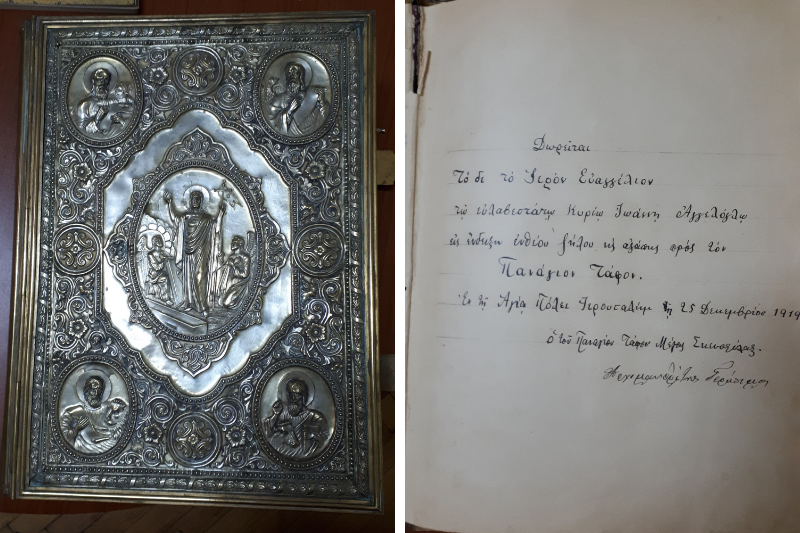 Δωρεῖται
Τό δε τὸ Ἱερὸν Εὐαγγέλιον
τῷ εὐλαβεστάτῳ Κυρίῳ Ἰωάννῃ Ἀγγελόγλῳ
εἰς ἔνδειξιν ἐνθέου ζήλου κ̣ς ἀγάπης πρὸς τὸν
Πανάγιον Τάφον.
Ἐν τῇ Ἁγίᾳ Πόλει Ἱερουσαλὴμ τῇ 25 Δεκεμβρίου 1919
ὁ τοῦ Παναγίου Τάφου Μέγας Σκευοφύλαξ.
Ἀρχιμανδρίτης Γεράσιμος